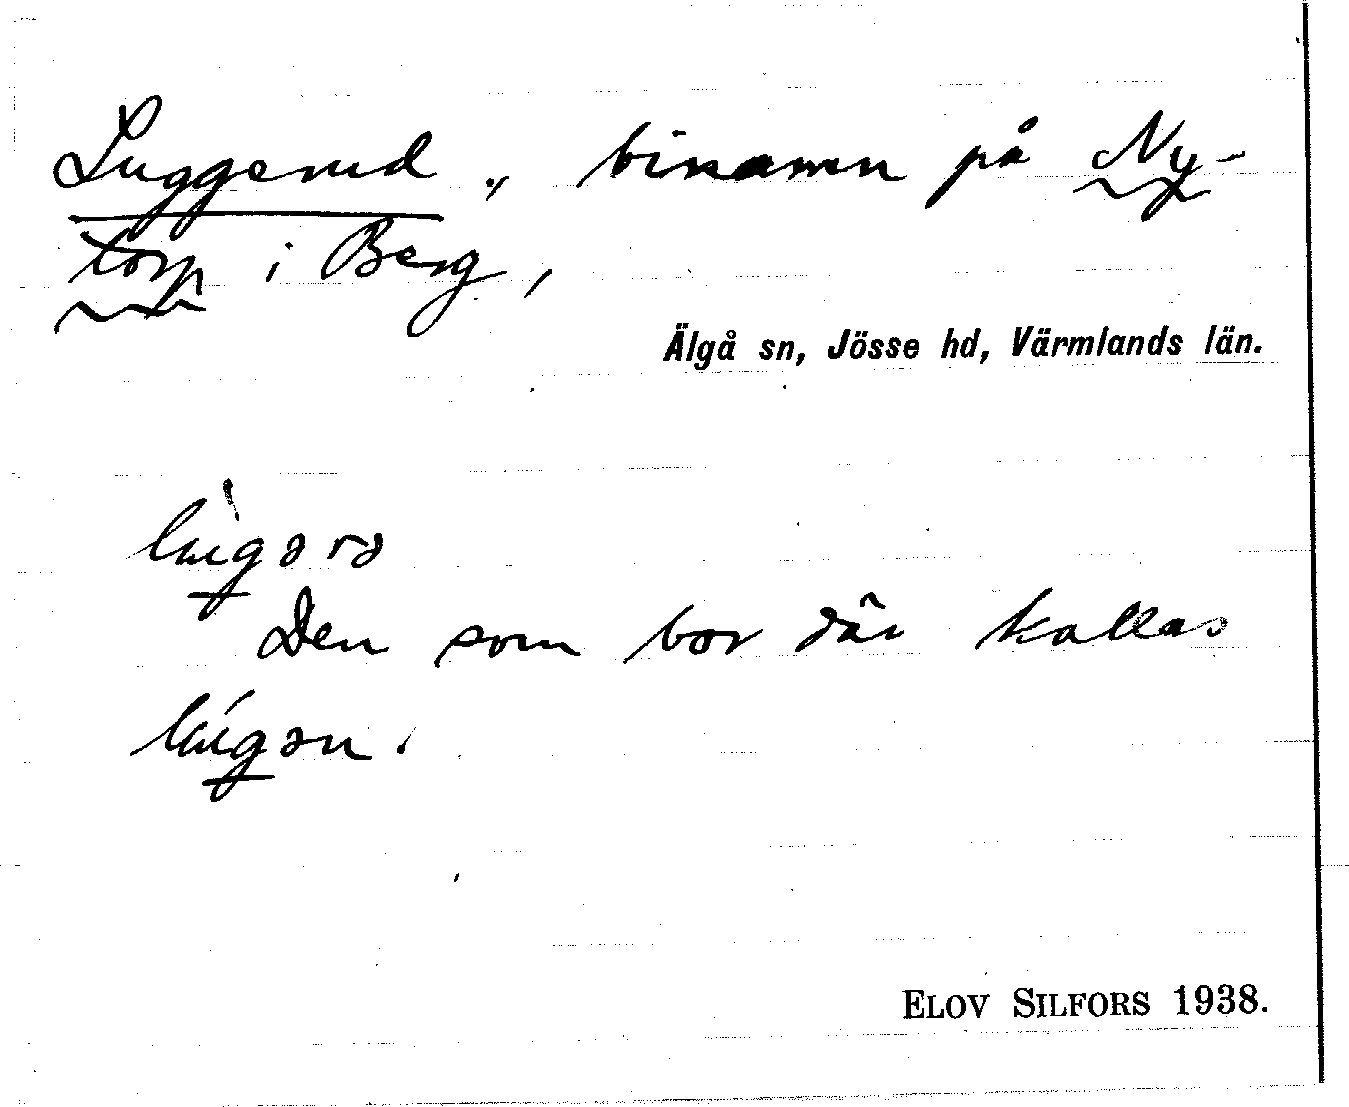 Luggerud, binamn på Ny-
torp i Berg,
Älgå sn, Jösse hd, Värmlands län.
Den som bor där kallas
ELOV SILFORS 1938.